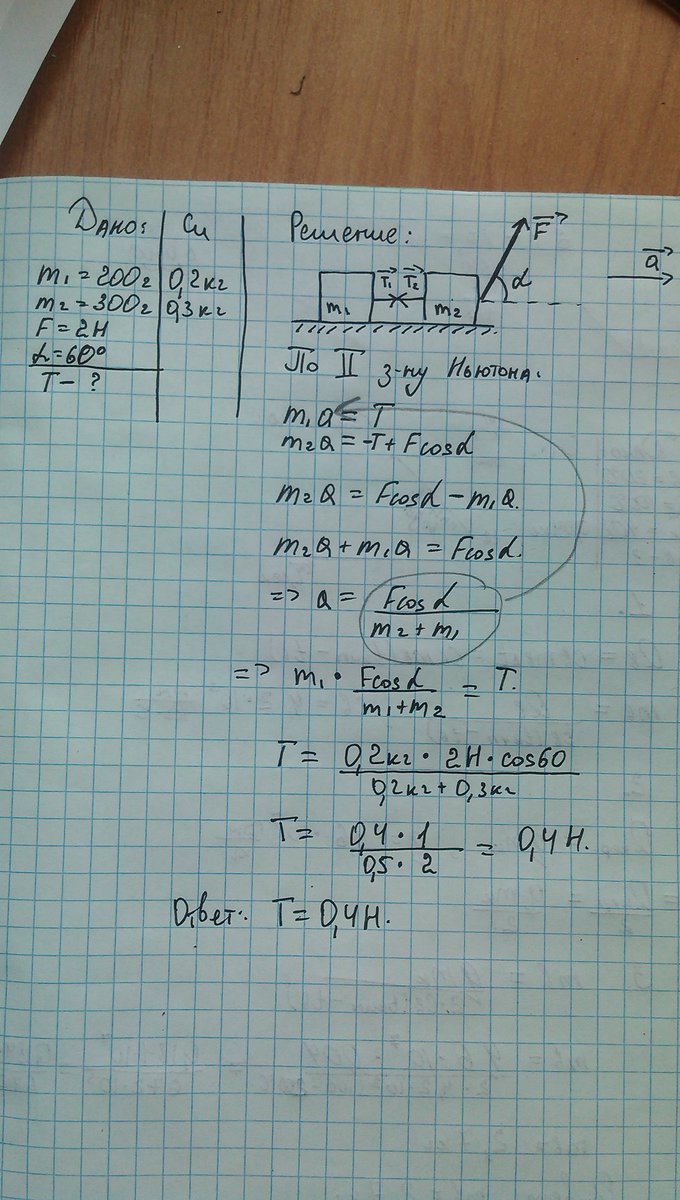 Дано:
Си
m₁ = 200г 0,2кг
m₂ = 300г 0,3кг
F = 2Н
α = 60°
T - ?
Решение:
m₁ T₁ T₂ m₂ F α a
По II з-ну Ньютона.
m₁a = T
m₂a = -T + Fcosα
m₂a = Fcosα - m₁a.
m₂a + m₁a = Fcosα.
=> a = Fcosα / m₂ + m₁
=> m₁ · Fcosα / m₁ + m₂ = T.
T = 0,2кг · 2Н · cos60 / 0,2кг + 0,3кг
T = 0,4 · 1 / 0,5 · 2 = 0,4Н.
Ответ: T = 0,4Н.